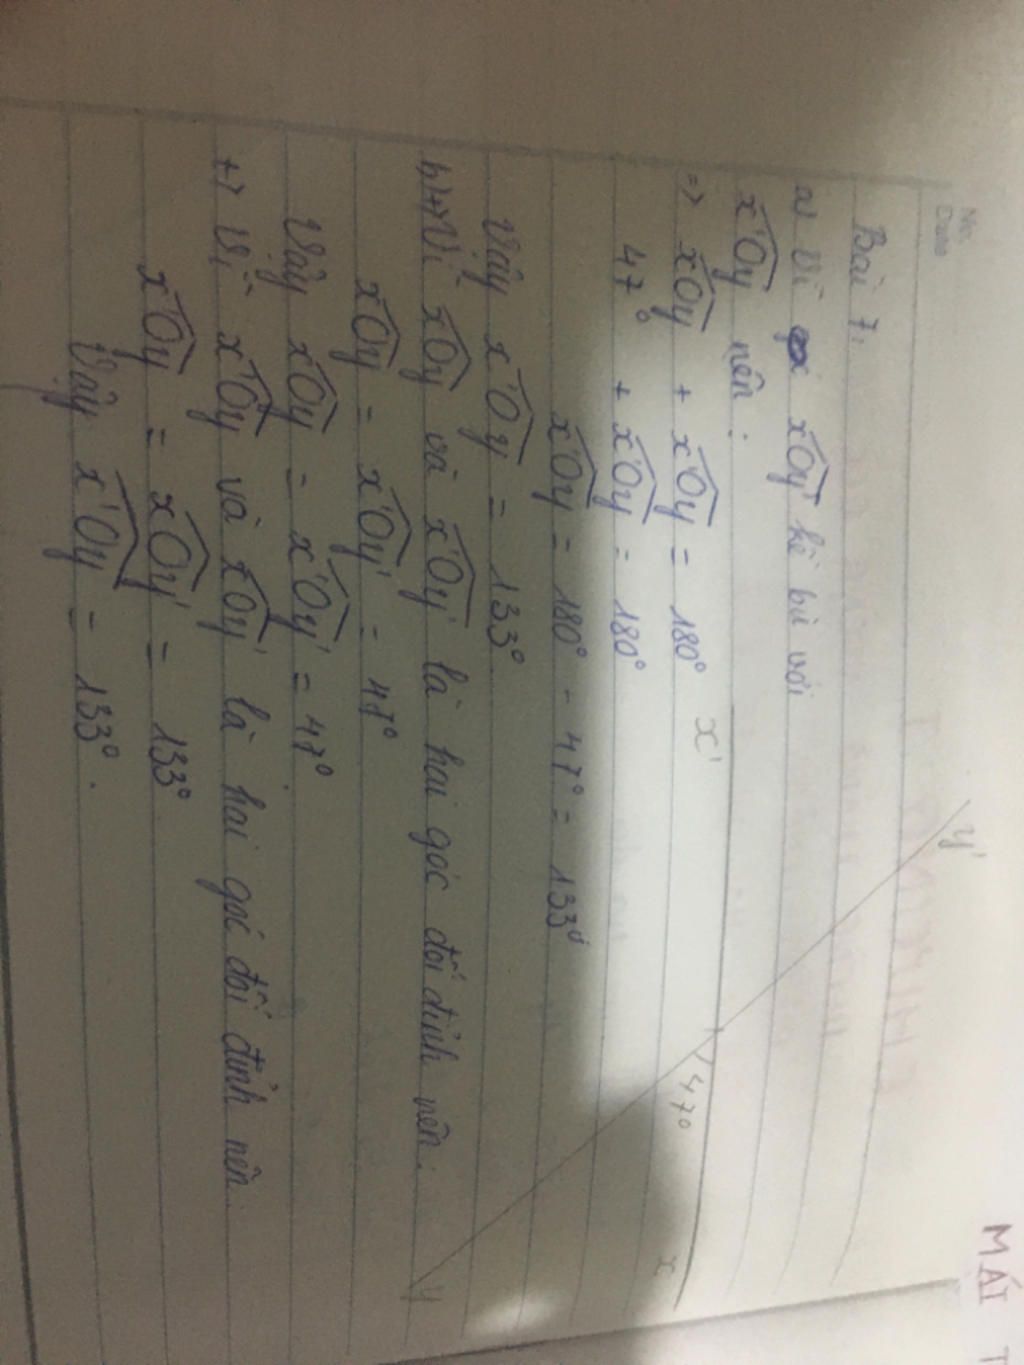 No.
Date
MÁI T
Bài 7.
a) Vì xOy' kề bù với
x'Oy nên:
=> xOy + x'Oy = 180°
47° + x'Oy = 180°
x'Oy = 180° - 47° = 133°
Vậy x'Oy = 133°
b) +) Vì xOy và x'Oy' là hai góc đối đỉnh nên.
xOy = x'Oy' = 47°
Vậy xOy = x'Oy' = 47°
+) Vì x'Oy và xOy' là hai góc đối đỉnh nên.
x'Oy = xOy' = 133°
Vậy x'Oy = 133°.
y'
x'
47°
x
y